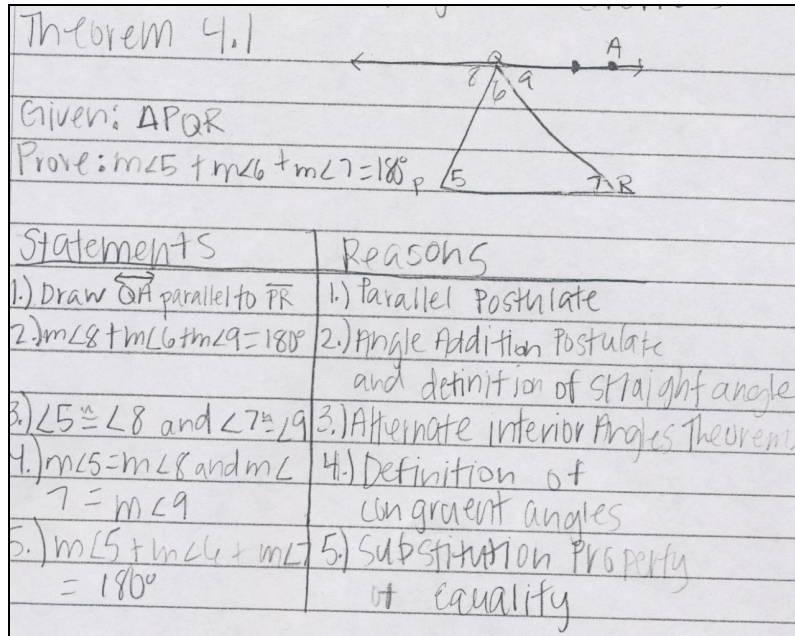 Theorem 4.1
A
Q
8 6 9
Given: △PQR
Prove: m∠5 + m∠6 + m∠7 = 180°
P 5 7 R
Statements Reasons
1.) Draw QA parallel to PR 1.) Parallel Postulate
2.) m∠8 + m∠6 + m∠9 = 180° 2.) Angle Addition Postulate
and definition of straight angle
3.) ∠5 ≅ ∠8 and ∠7 ≅ ∠9 3.) Alternate Interior Angles Theorem
4.) m∠5 = m∠8 and m∠ 4.) Definition of
7 = m∠9 congruent angles
5.) m∠5 + m∠6 + m∠7 5.) Substitution Property
= 180° of equality